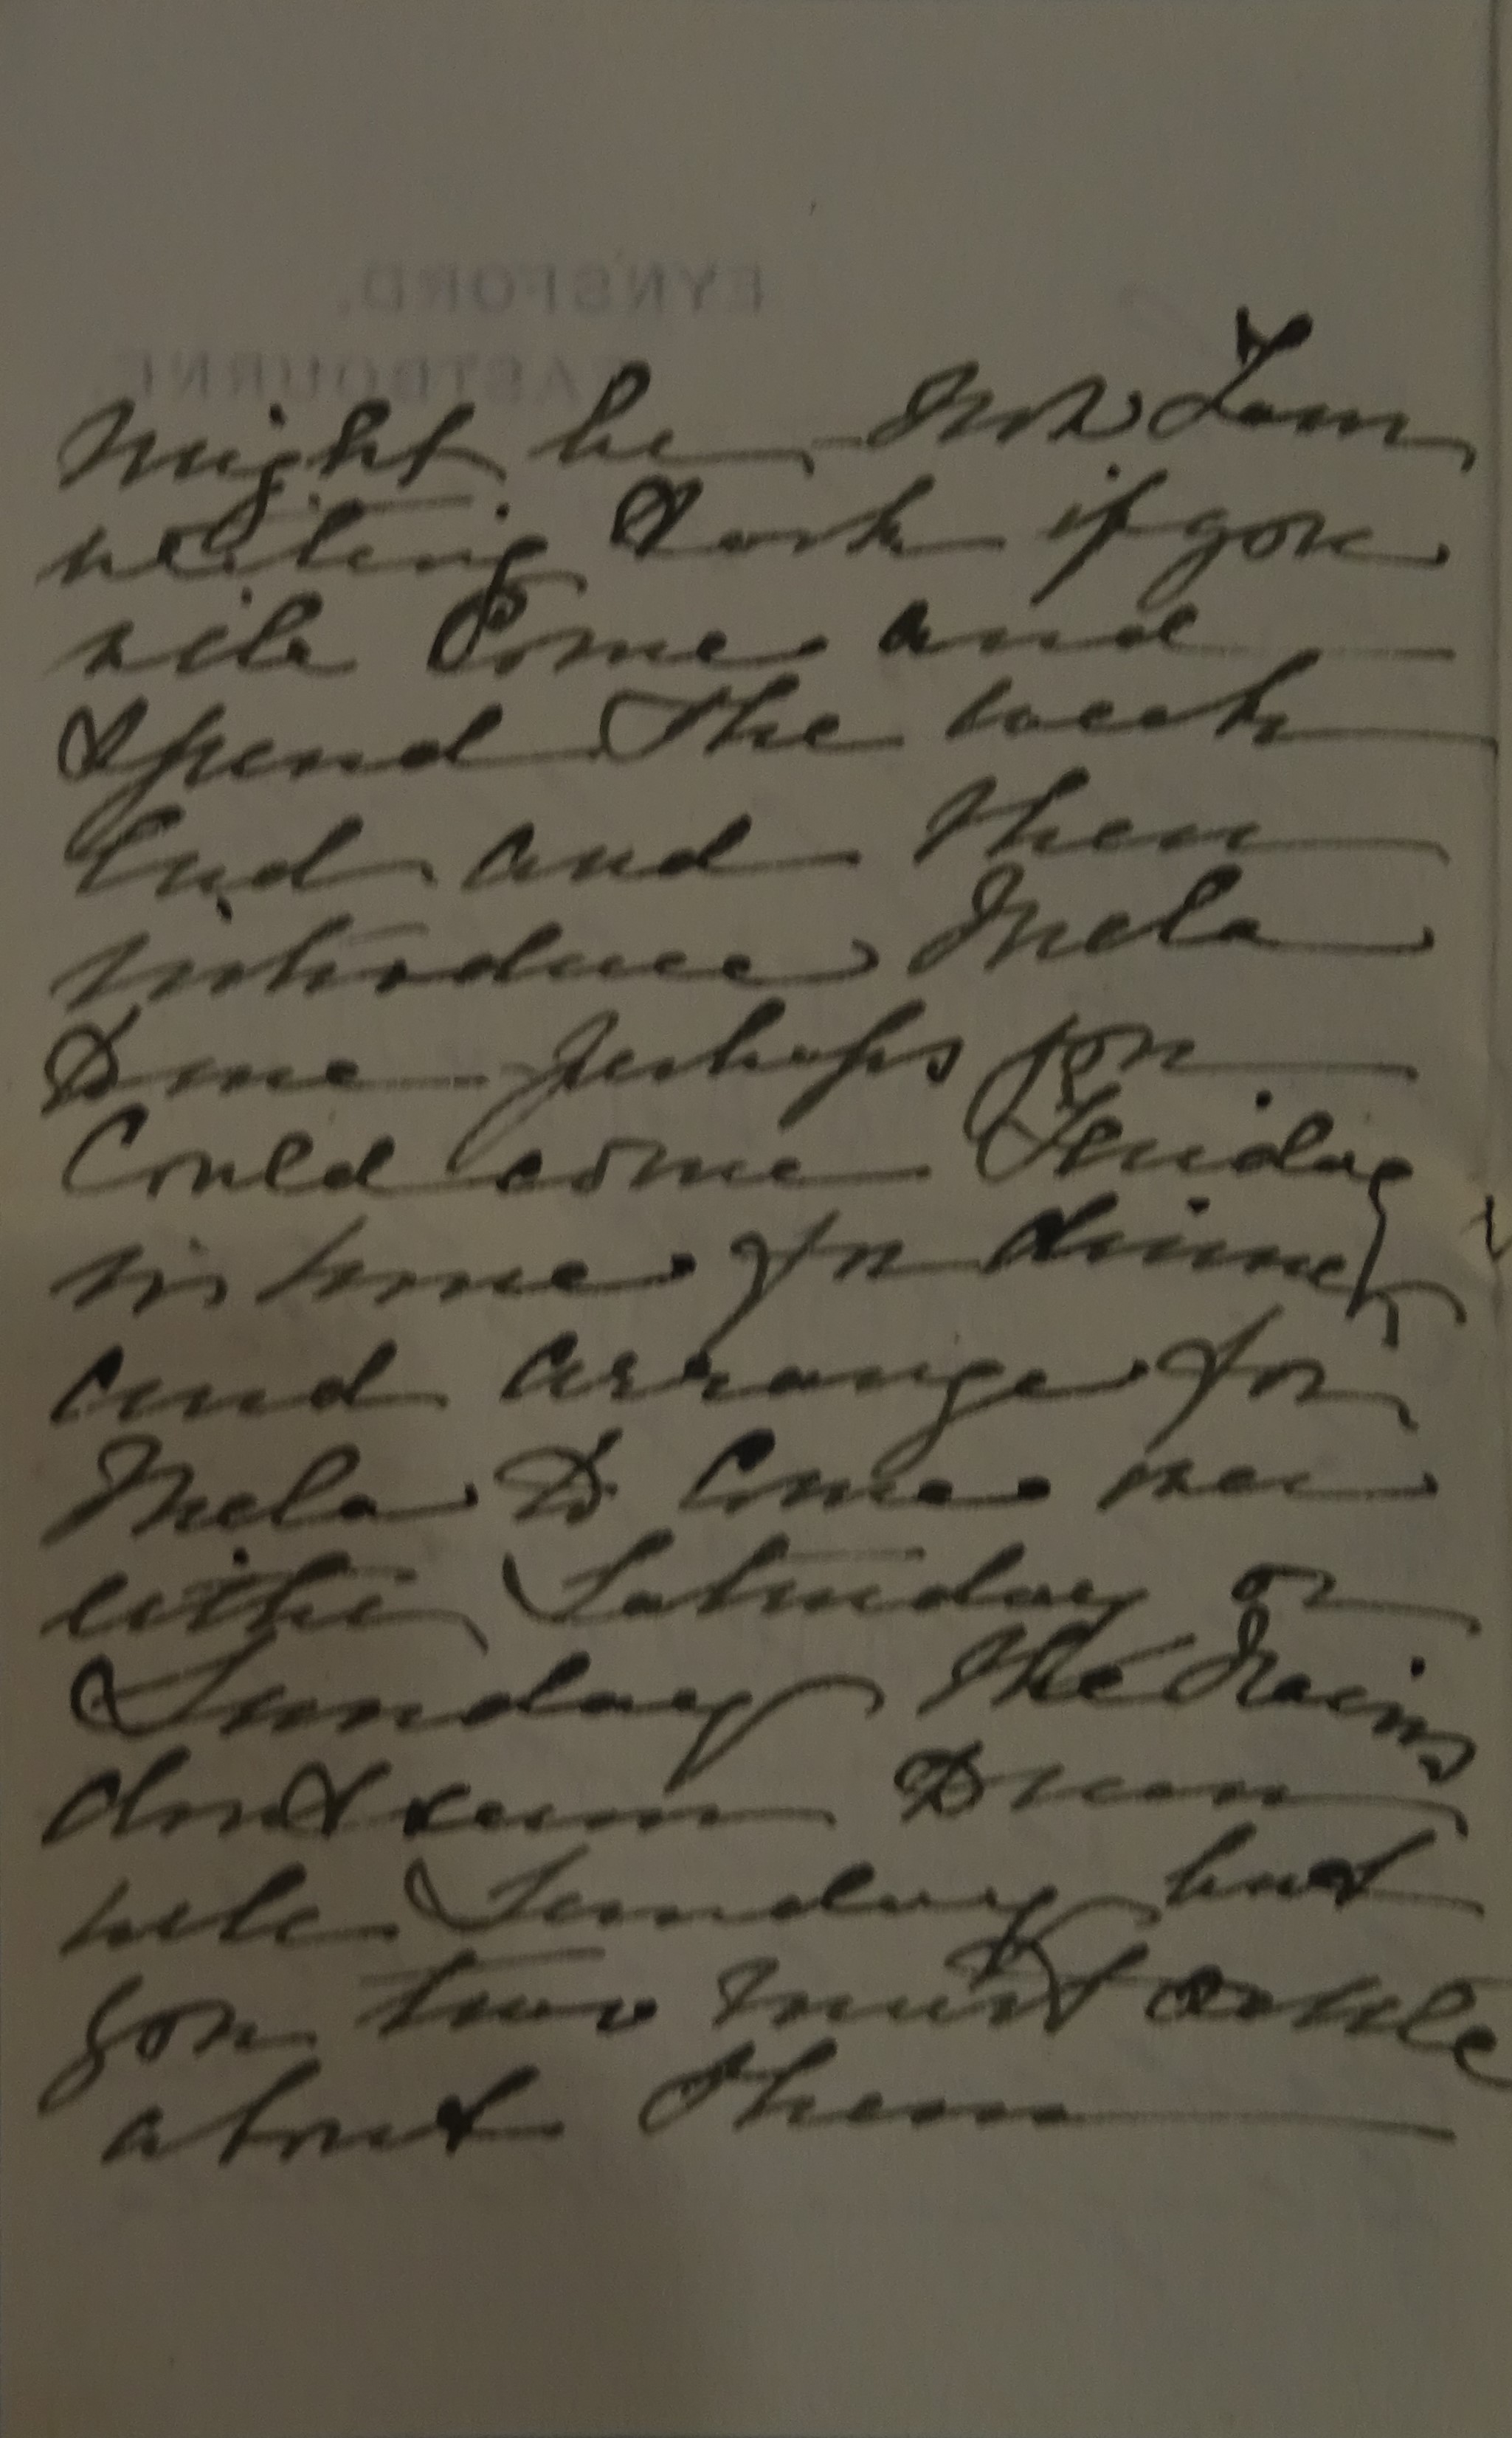 EYNSFORD.
EASTBOURNE
might be. Now I am
writing to ask if you
will come and
spend the week
End and then
introduce Mela
to me perhaps you
could come Friday
in time for dinner
and arrange for
Mela to come
either Saturday or
Sunday the trains
dont seem to run
well Sunday but
you two must settle
about them